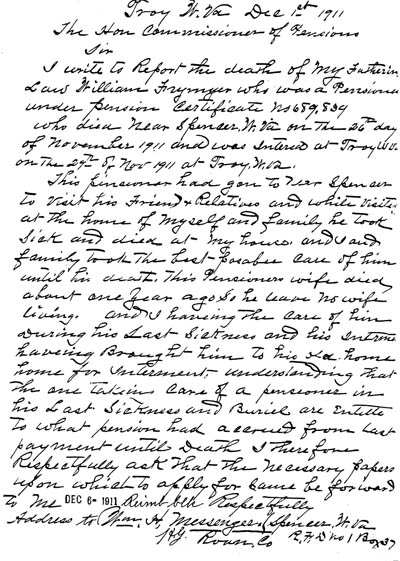 Troy W. Va Dec 1st 1911
The Hon Commissioner of Pensions
Sir
I write to Report the death of My Fatherin
Law William Frymyer who was a Pensione
under Pension Certificate No 689,839
who died Near Spencer, W. Va on the 26th day
of November 1911 and was Intered at Troy W.V.
on the 29th of Nov 1911 at Troy, W. Va.
This pinsioner had gon to Near Spencer
to visit his Friend & Relatives and while visiting
at the home of Myself and family he took
Sick and died at My house and I and
family took the best posabee Care of him
until his death. This Pensioners wife died
about one year ago So he leave No wife
living. and I haveing the Care of him
During his Last Sickness and his
haveing Brought him to his home
home for Interment, understanding that
the one takein Care of a pensioner in
his Last Sickness and Buriel are Entitle
to what pension had accrued from last
payment until Death I Therefore
Respectfully ask That the Necessary Papers
upon which to apply for Same be forward
to Me DEC 6- 1911 Respectfully
Address to Wm. H. Messenger, Spencer, W. Va
Roan, Co R. F. D No 1 Box 37